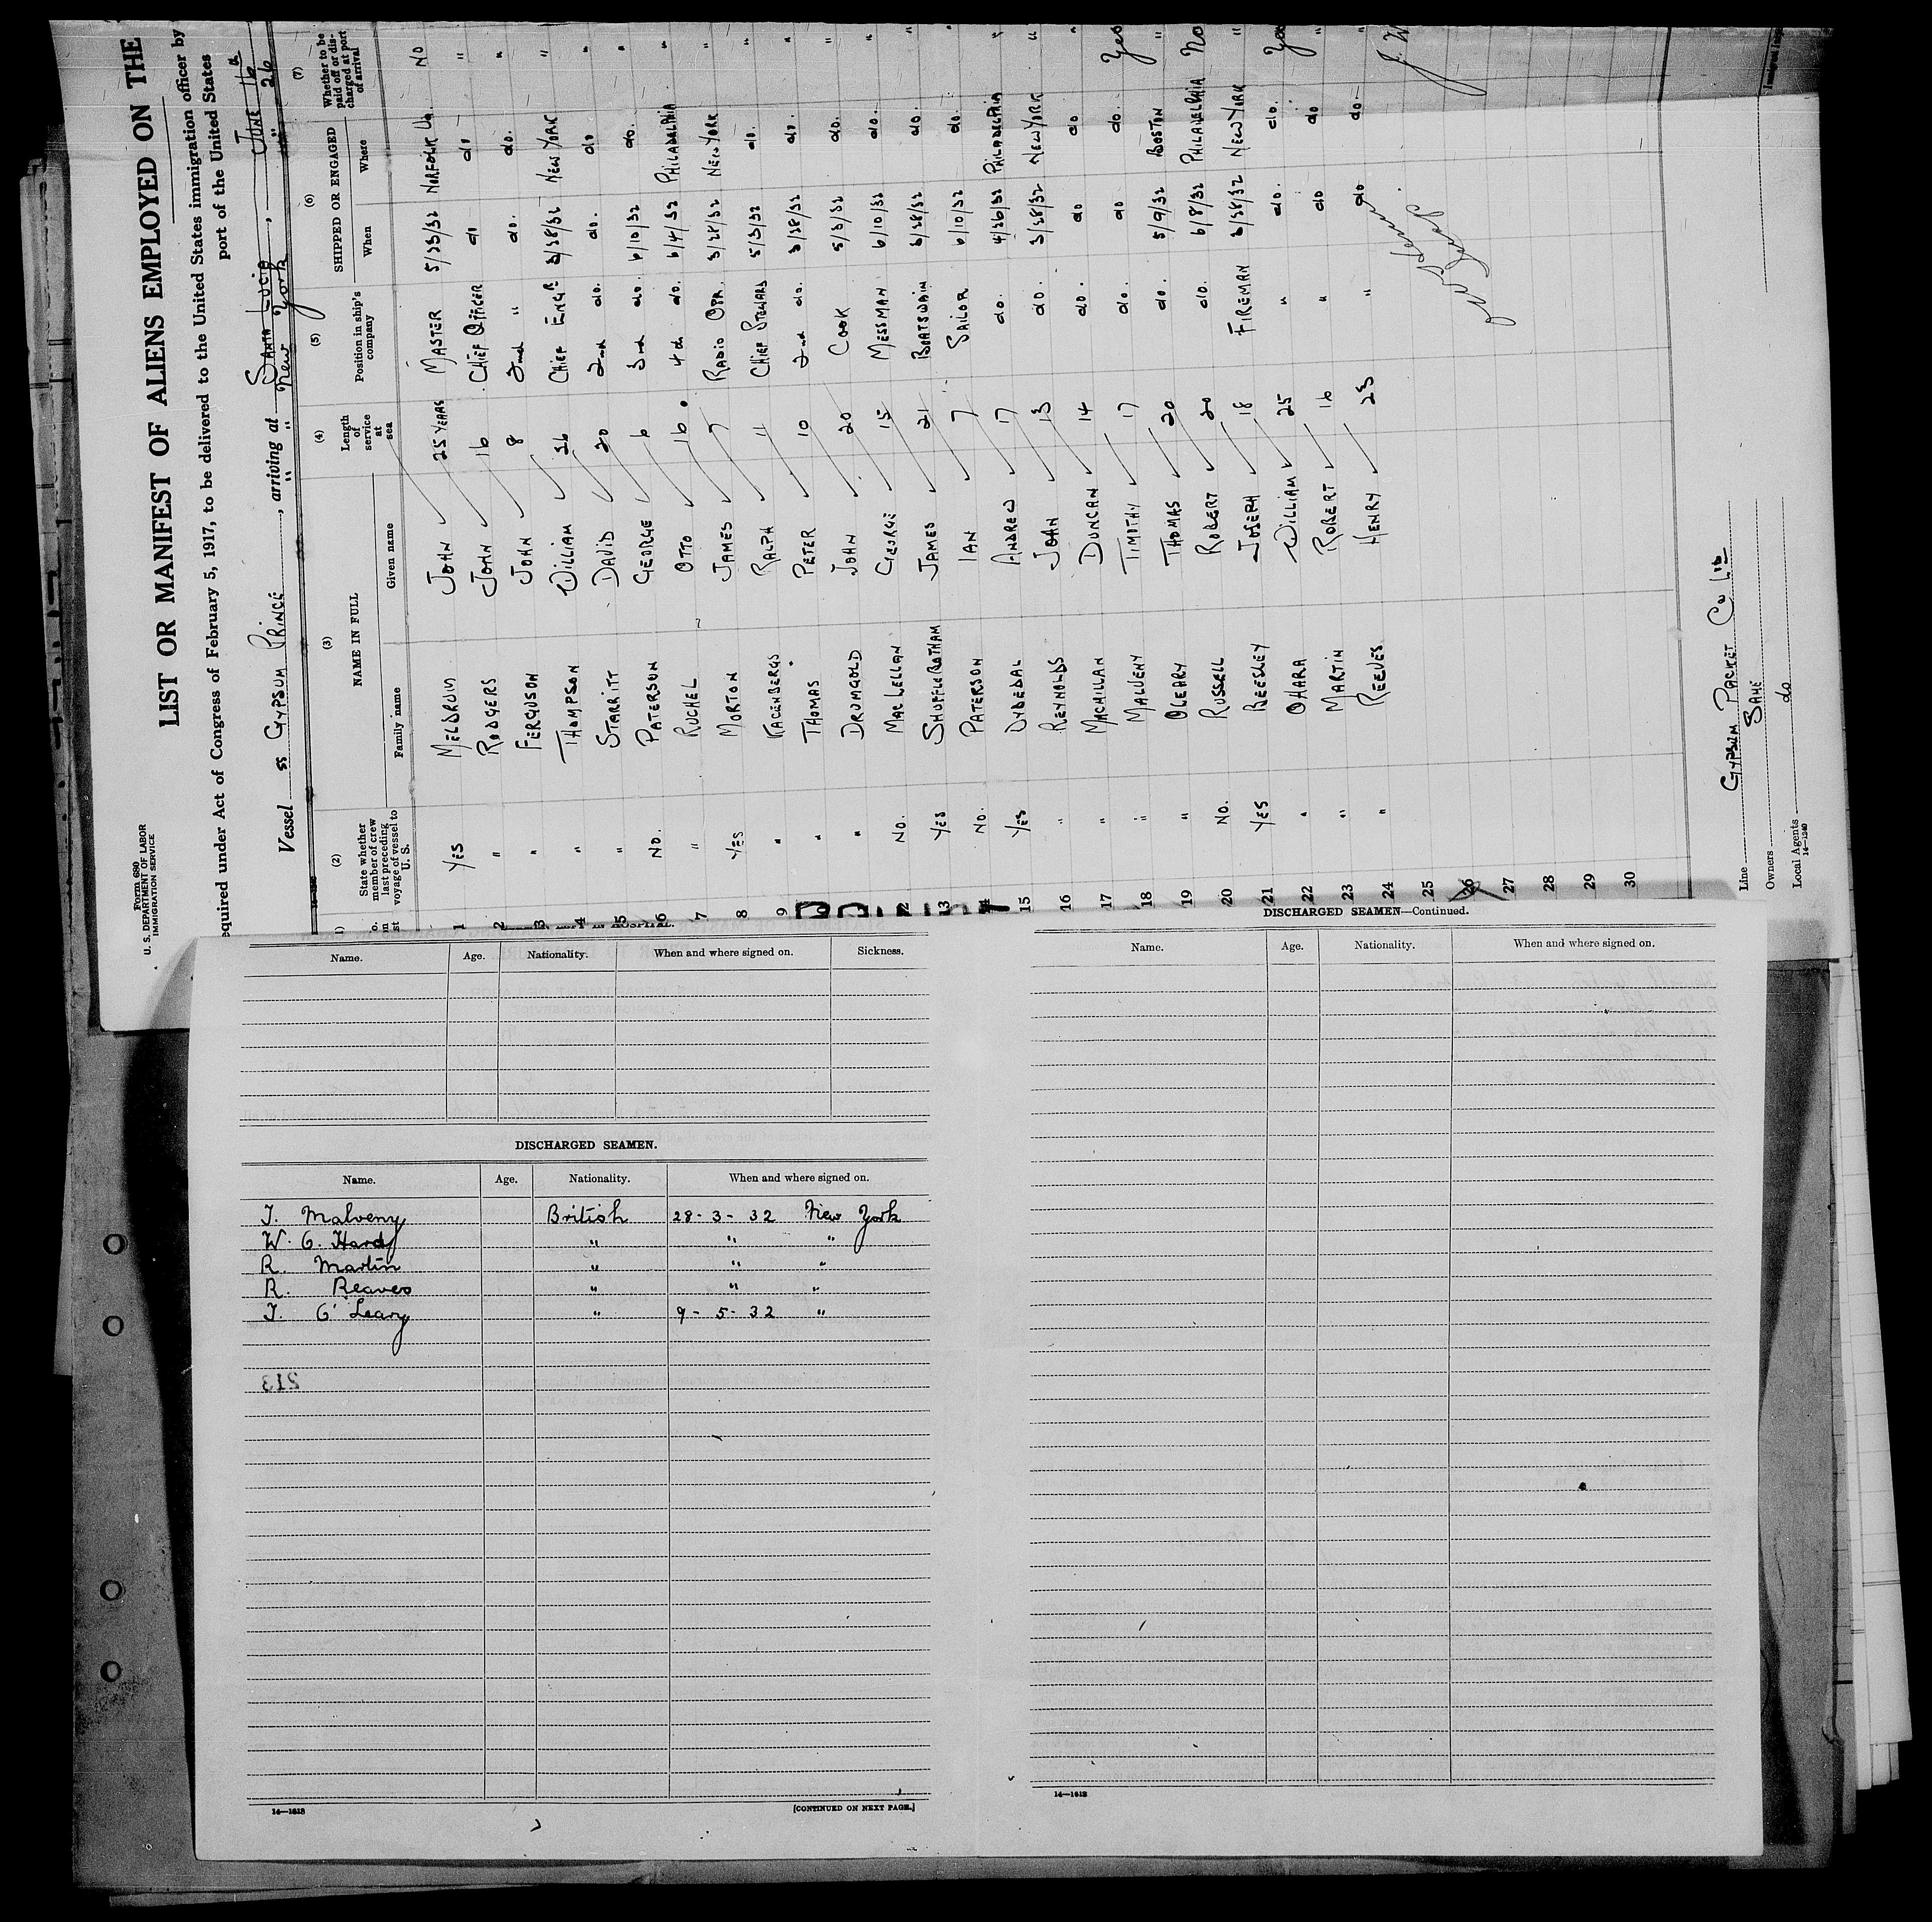 Form 680
U. S. DEPARTMENT OF LABOR
IMMIGRATION SERVICE
LIST OR MANIFEST OF ALIENS EMPLOYED ON THE
equired under Act of Congress of February 5, 1917, to be delivered to the United States immigration officer by
port of the United States
Vessel SS GYPSUM PRINCE, arriving at SANTA LUCIA, JUNE 16
" " New York " 26
(2) (3) (4) (5) (6) (7)
State whether member of crew last preceding voyage of vessel to U. S. NAME IN FULL Length of service at sea Position in ship's company SHIPPED OR ENGAGED Whether to be paid off or discharged at port of arrival
Family name Given name When Where
1 YES MELDRUM JOHN 25 YEARS MASTER 5/23/32 NORFOLK Va. NO
2 " RODGERS JOHN 16 CHIEF OFFICER do do "
3 " FERGUSON JOHN 8 2nd " do. do. "
4 " THOMPSON WILLIAM 26 CHIEF ENGR 3/28/32 NEW YORK "
5 " STARRITT DAVID 20 2nd do. do. do "
6 NO. PATERSON GEORGE 6 3rd do. 6/10/32 do. "
7 " RUCHEL OTTO 16 4th do. 6/4/32 PHILADELPHIA "
8 YES MORTON JAMES 7 RADIO OPR. 3/28/32 NEW YORK "
9 " KAGENBERGS RALPH 11 CHIEF STEWARD 5/3/32 do. "
" THOMAS PETER 10 2nd do. 3/28/32 do. "
" DRUMGOLD JOHN 20 COOK 5/3/32 do. "
2 NO. MACLELLAN GEORGE 15 MESSMAN 6/10/32 do. "
13 YES SHUFFLEBOTHAM JAMES 21 BOATSWAIN 3/28/32 do. "
14 NO. PATERSON IAN 7 SAILOR 6/10/32 do. "
15 YES DYDEDAL ANDREW 17 do. 4/26/32 PHILADELPHIA "
16 " REYNOLDS JOHN 13 do. 3/28/32 NEW YORK "
17 " MACMILLAN DUNCAN 14 do. do do "
18 " MALVENY TIMOTHY 17 do. do do. Yes
19 " OLEARY THOMAS 20 do. 5/9/32 BOSTON "
20 NO. RUSSELL ROBERT 20 do. 6/8/32 PHILADELPHIA No
21 YES BEESLEY JOSEPH 18 FIREMAN 3/28/32 NEW YORK "
22 " OHARA WILLIAM 25 " do. do. Yes
23 " MARTIN ROBERT 16 " do do "
24 " REEVES HENRY 23 " do do "
25
26
27
28
29
30
Line GYPSUM PACKET Co Ltd
Owners SAME
Local Agents do
14—1240
Name. Age. Nationality. When and where signed on. Sickness.
DISCHARGED SEAMEN.
Name. Age. Nationality. When and where signed on.
T. Malveny British 28-3-32 New York
W. O. Hardy " " "
R. Martin " " "
R. Reaves " " "
T. O'Leary " 9-5-32 "
213
14—1613
[CONTINUED ON NEXT PAGE.]
DISCHARGED SEAMEN—Continued.
Name. Age. Nationality. When and where signed on.
14—1613